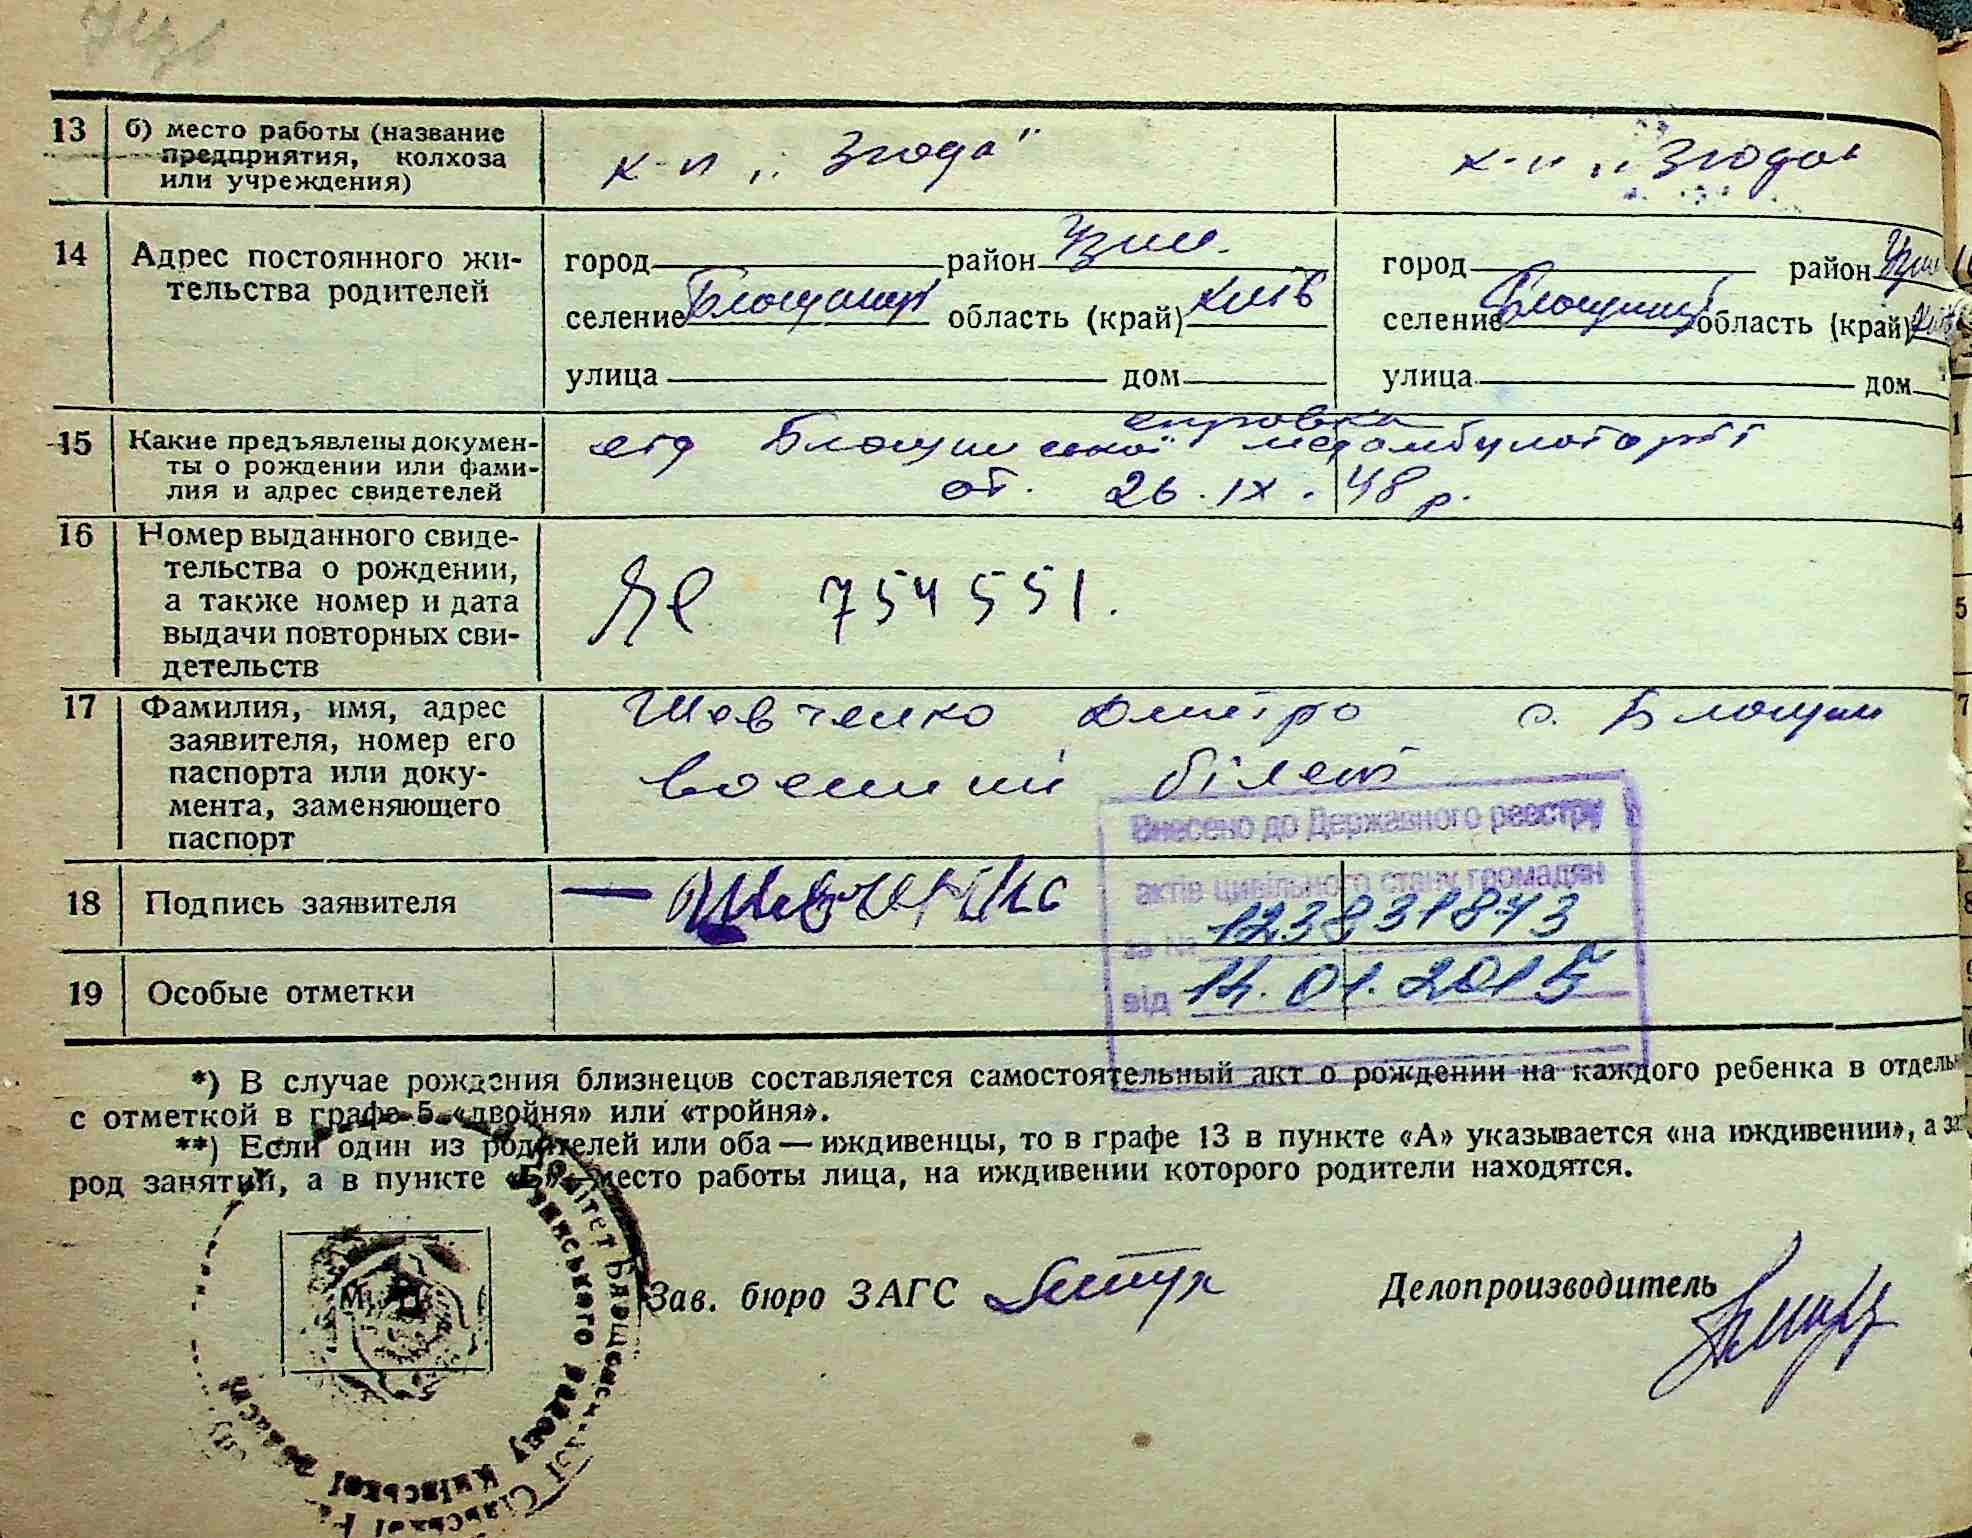 13 б) место работы (название
предприятия, колхоза
или учреждения)
к-п „Згода" к-п „Згода"
14 Адрес постоянного жи-
тельства родителей
город район Узин. город район Узин
селение Блощинці область (край) Київ селение Блощинці область (край) Київ
улица дом улица дом
справка
15 Какие предъявлены докумен-
ты о рождении или фами-
лия и адрес свидетелей
Блощинської медамбулаторії
от. 26.IX.48 р.
16 Номер выданного свиде-
тельства о рождении,
а также номер и дата
выдачи повторных сви-
детельств
754551.
17 Фамилия, имя, адрес
заявителя, номер его
паспорта или доку-
мента, заменяющего
паспорт
Шевченко Дмитро с. Блощин
воєнний білет
Внесено до Державного реєстру
актів цивільного стану громадян
за № 123831873
від 14.01.2015
18 Подпись заявителя
— Шевченко
19 Особые отметки
*) В случае рождения близнецов составляется самостоятельный акт о рождении на каждого ребенка в отдель
с отметкой в графе 5 «двойня» или «тройня».
**) Если один из родителей или оба — иждивенцы, то в графе 13 в пункте «А» указывается «на иждивении», а за
род занятий, а в пункте «Б» — место работы лица, на иждивении которого родители находятся.
М. П.
Зав. бюро ЗАГС Делопроизводитель
району Київської області